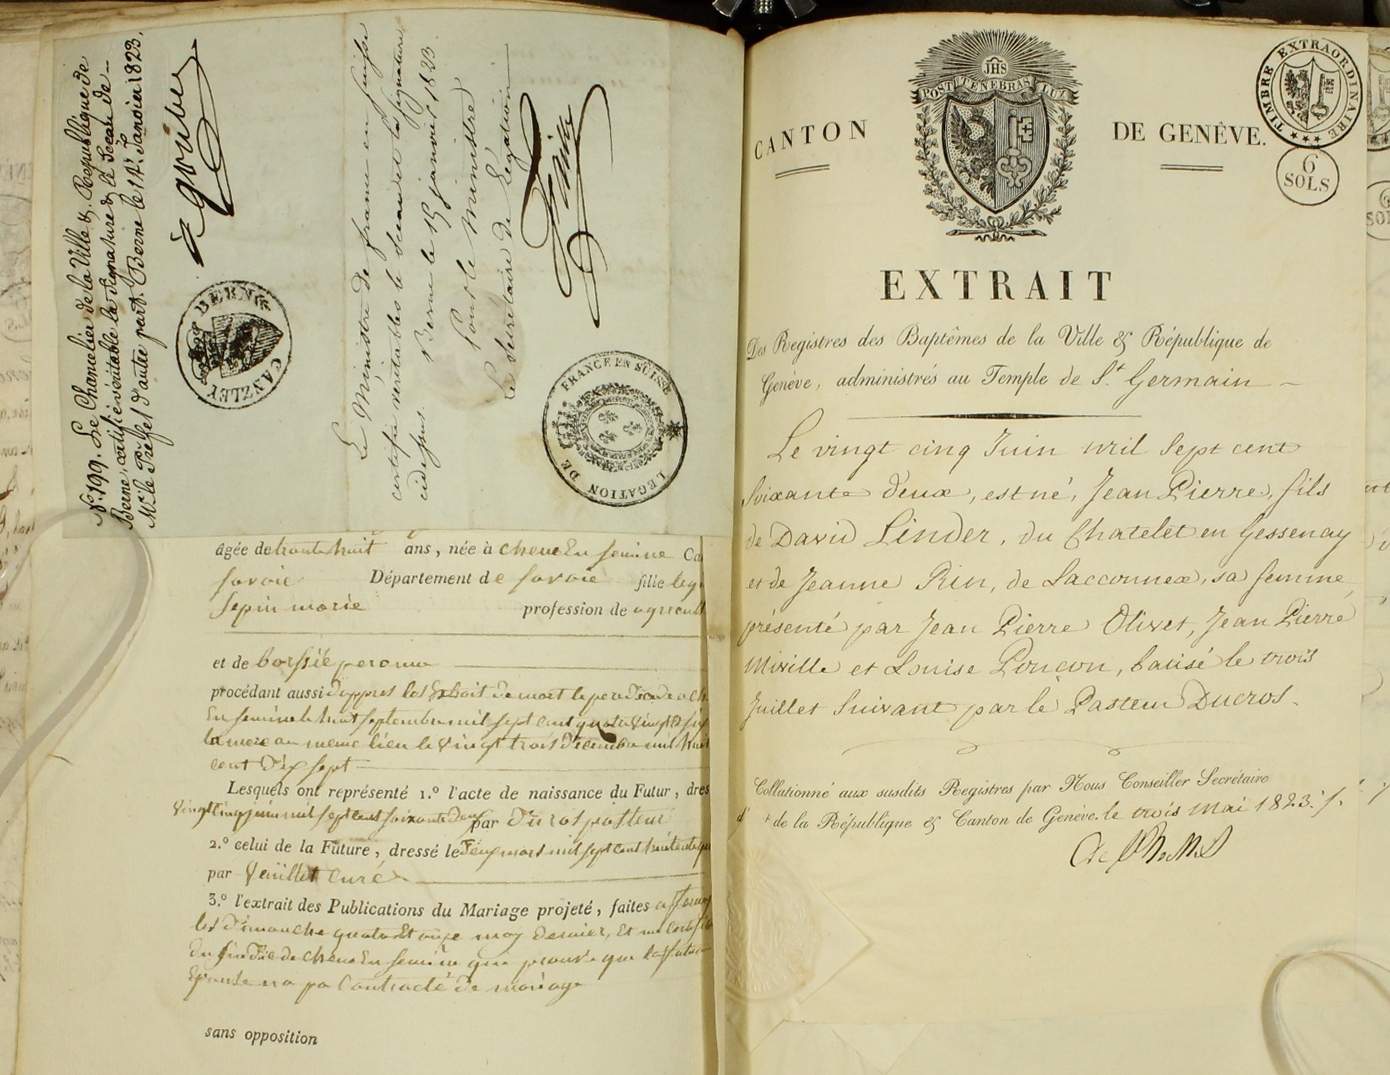 N.º 199. Le Chancelier de la Ville & République de
Berne, certifie véritable la Signature & le Sceau de
Mr. le Préfet d'autre part. Berne le 14.e Janvier 1823.
BERNE CANZLEY
Le Ministre de france en Suisse
certifie véritables le Sceau et la Signature
cidessus.
Berne le 15 janvier 1823.
Pour le Ministre
Le Secrétaire de Légation
LEGATION DE FRANCE EN SUISSE
agée de trente huit ans, née à Chene En Semine Ca
Savoie Département de Savoie fille leg
Sepin marie profession de agricult
et de
procédant aussi dappres les Extrait de mort le pere
En Semine le huit septembre mil sept cent quatre vingt
la mere au meme lieu le vingt trois décembre mil huit
cent dix sept
Lesquels ont représenté 1.º l'acte de naissance du Futur, dres
vingt cinq juin mil sept cent soixante deux par Ducros pasteur
2.º celui de la Future, dressé le mil sept cent
par curé
3.º l'extrait des Publications du Mariage projeté, faites
les dimanche quatre Et onze may dernier, Et un
du sindic de Chene En Semine qui prouve que la future
Epouse na pa Contracté de mariage
sans opposition
JHS
POST TENEBRAS LUX
CANTON DE GENÈVE.
TIMBRE EXTRAORDINAIRE
6
SOLS
EXTRAIT
Des Registres des Baptêmes de la Ville & République de
Genève, administrés au Temple de St. Germain
Le vingt cinq Juin mil Sept cent
Soixante deux, est né, Jean Pierre, fils
de David Linder, du Chatelet en Gessenay
et de Jeanne Rin, de Lacconnex, sa femme
présenté par Jean Pierre Olivet, Jean Pierre
Miville et Louise Ponçon, batisé le trois
Juillet Suivant par le Pasteur Ducros.
Collationné aux susdits Registres par Nous Conseiller Secrétaire
d' de la République & Canton de Genève. le trois Mai 1823.